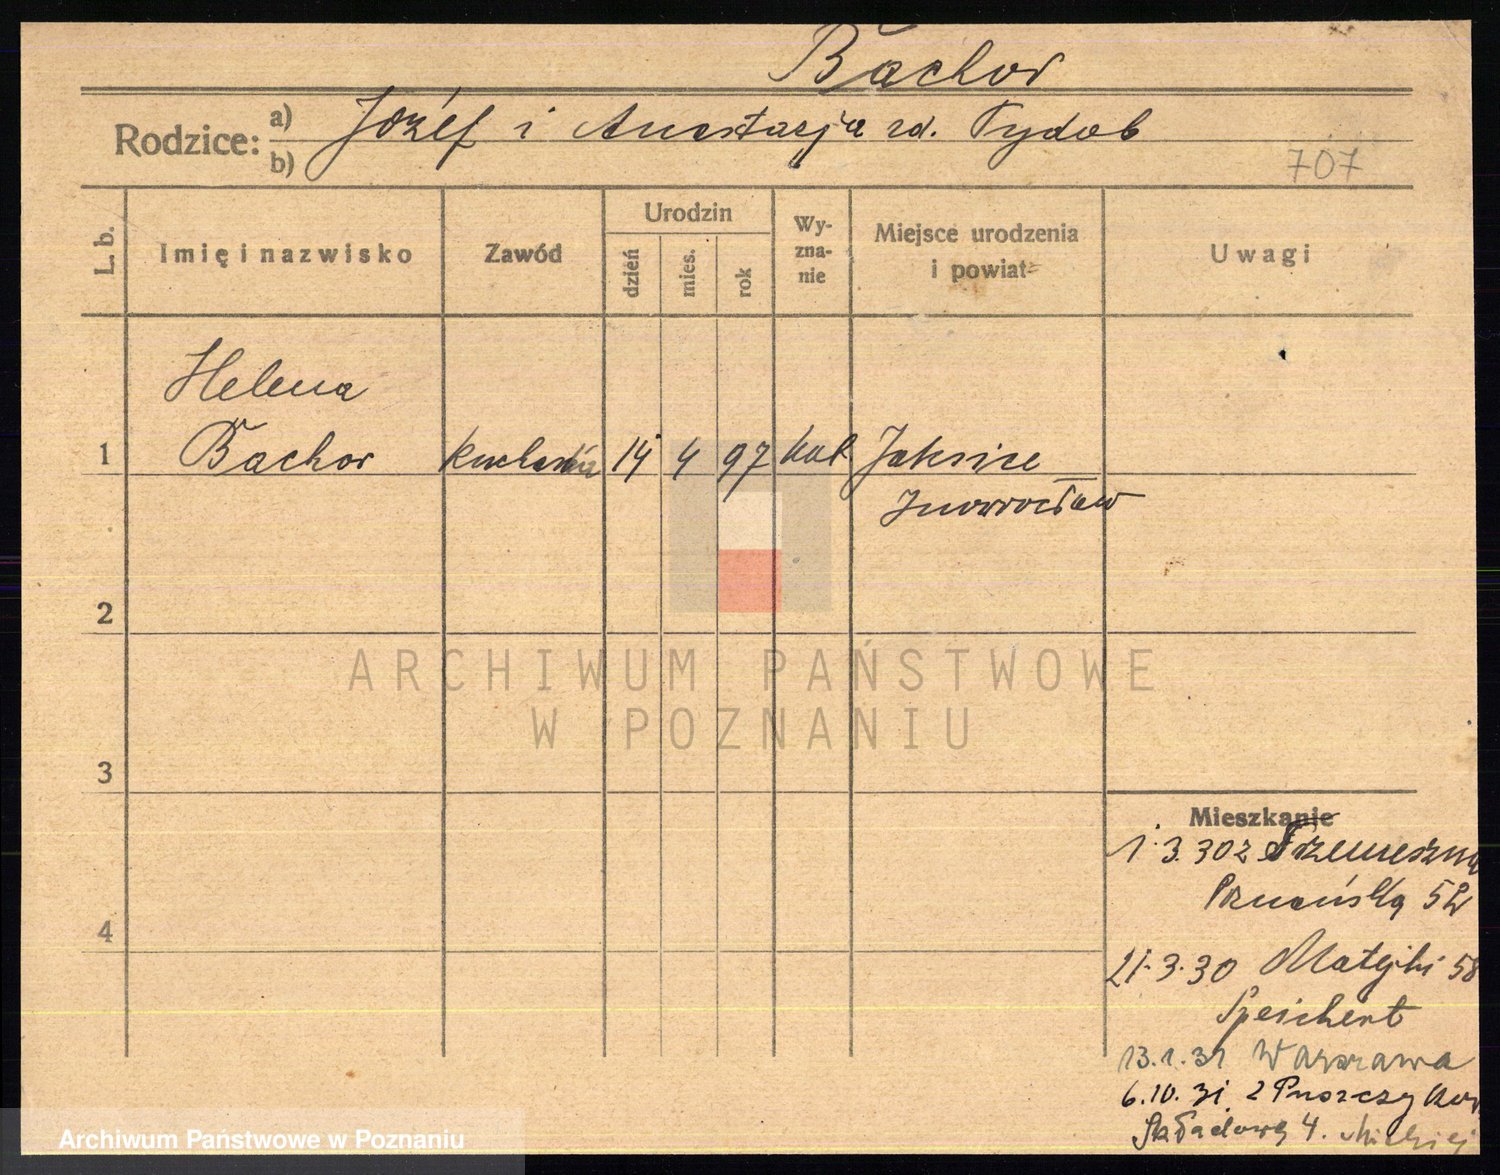 Bachor
Rodzice: a) b) Józef i Anastazja zd. Pydob
707
L. b. Imię i nazwisko Zawód Urodzin dzień mies. rok Wy-zna-nie Miejsce urodzenia i powiat Uwagi
Helena
1 Bachor kucharka 14 4 97 kat Jaksice
Inowrocław
2
ARCHIWUM PAŃSTWOWE
W POZNANIU
3
Mieszkanie
1.3.30 z Trzemeszna
52
4
21.3.30 Matejki 58
Speichert
13.1.31 Warszawa
6.10.31 z Puszczykow
Składowa 4.
Archiwum Państwowe w Poznaniu